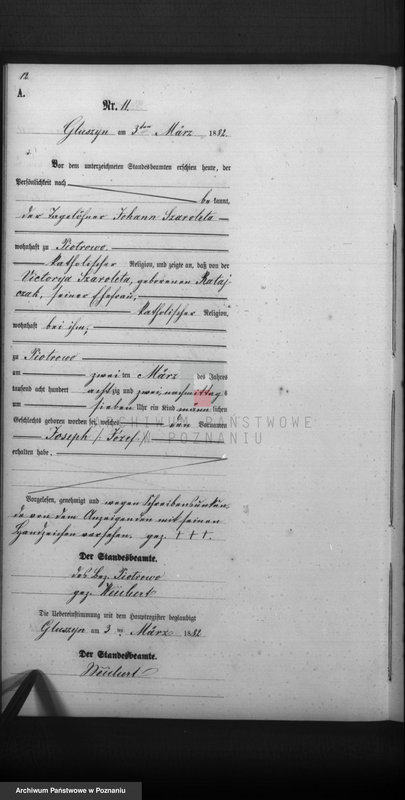 12
A.
Nr. 11.
Gluszyn am 3ten März 1882.
Vor dem unterzeichneten Standesbeamten erschien heute, der
Persönlichkeit nach
bekannt,
der Tagelöhner Johann Szaroleta
wohnhaft zu Piotrowo
katholischer Religion, und zeigte an, daß von der
Victorya Szaroleta, geborenen Rataj-
czak, seiner Ehefrau,
katholischer Religion,
wohnhaft bei ihm,
zu Piotrowo
am zweiten März des Jahres
tausend acht hundert achtzig und zwei, nachmittags
um sieben Uhr ein Kind männlichen
Geschlechts geboren worden sei, welches den Vornamen
Joseph / Józef /
erhalten habe.
Vorgelesen, genehmigt und wegen Schreibensunkun-
de von dem Anzeigenden mit seinen
Handzeichen versehen. gez. +++.
Der Standesbeamte.
des Bez. Piotrowo
gez. Weichert
Die Uebereinstimmung mit dem Hauptregister beglaubigt
Gluszyn am 3 ten März 1882
Der Standesbeamte.
Weichert
ARCHIWUM PAŃSTWOWE
W POZNANIU
Archiwum Państwowe w Poznaniu